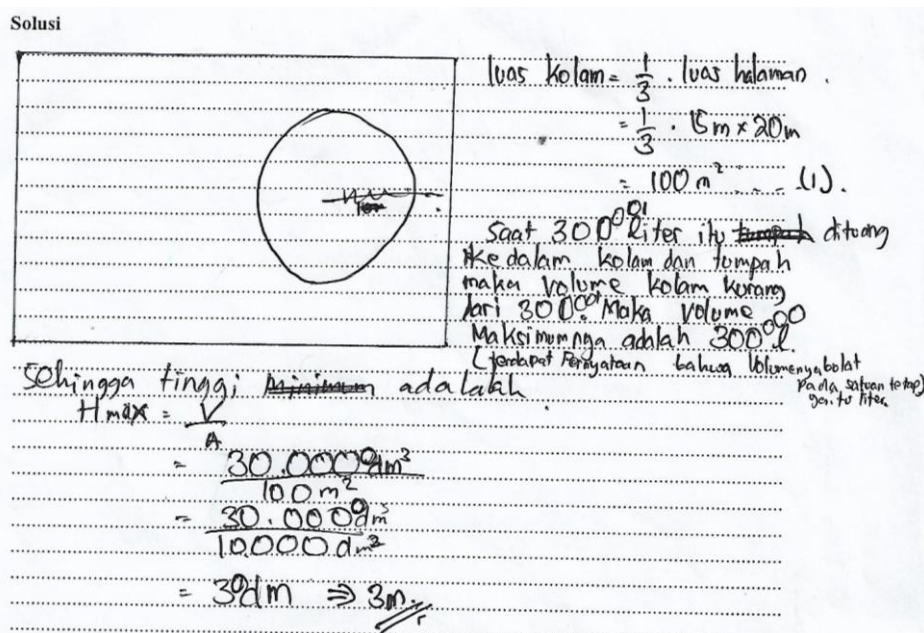 Solusi
luas kolam = 1/3 . luas halaman .
= 1/3 . 15m × 20m
= 100 m² .... (1).
Saat 300000l liter itu dituang
ke dalam kolam dan tumpah
maka volume kolam kurang
dari 300.000l. Maka volume
Maksimumnya adalah 300000 l.
(terdapat Pernyataan bahwa Volumenya bolat
pada satuan tetap)
yaitu liter
Sehingga tinggi adalah
Hmax = V/A
= 30.0000dm³/100m²
= 30.0000dm³/10.000dm²
= 30dm ⇒ 3m.